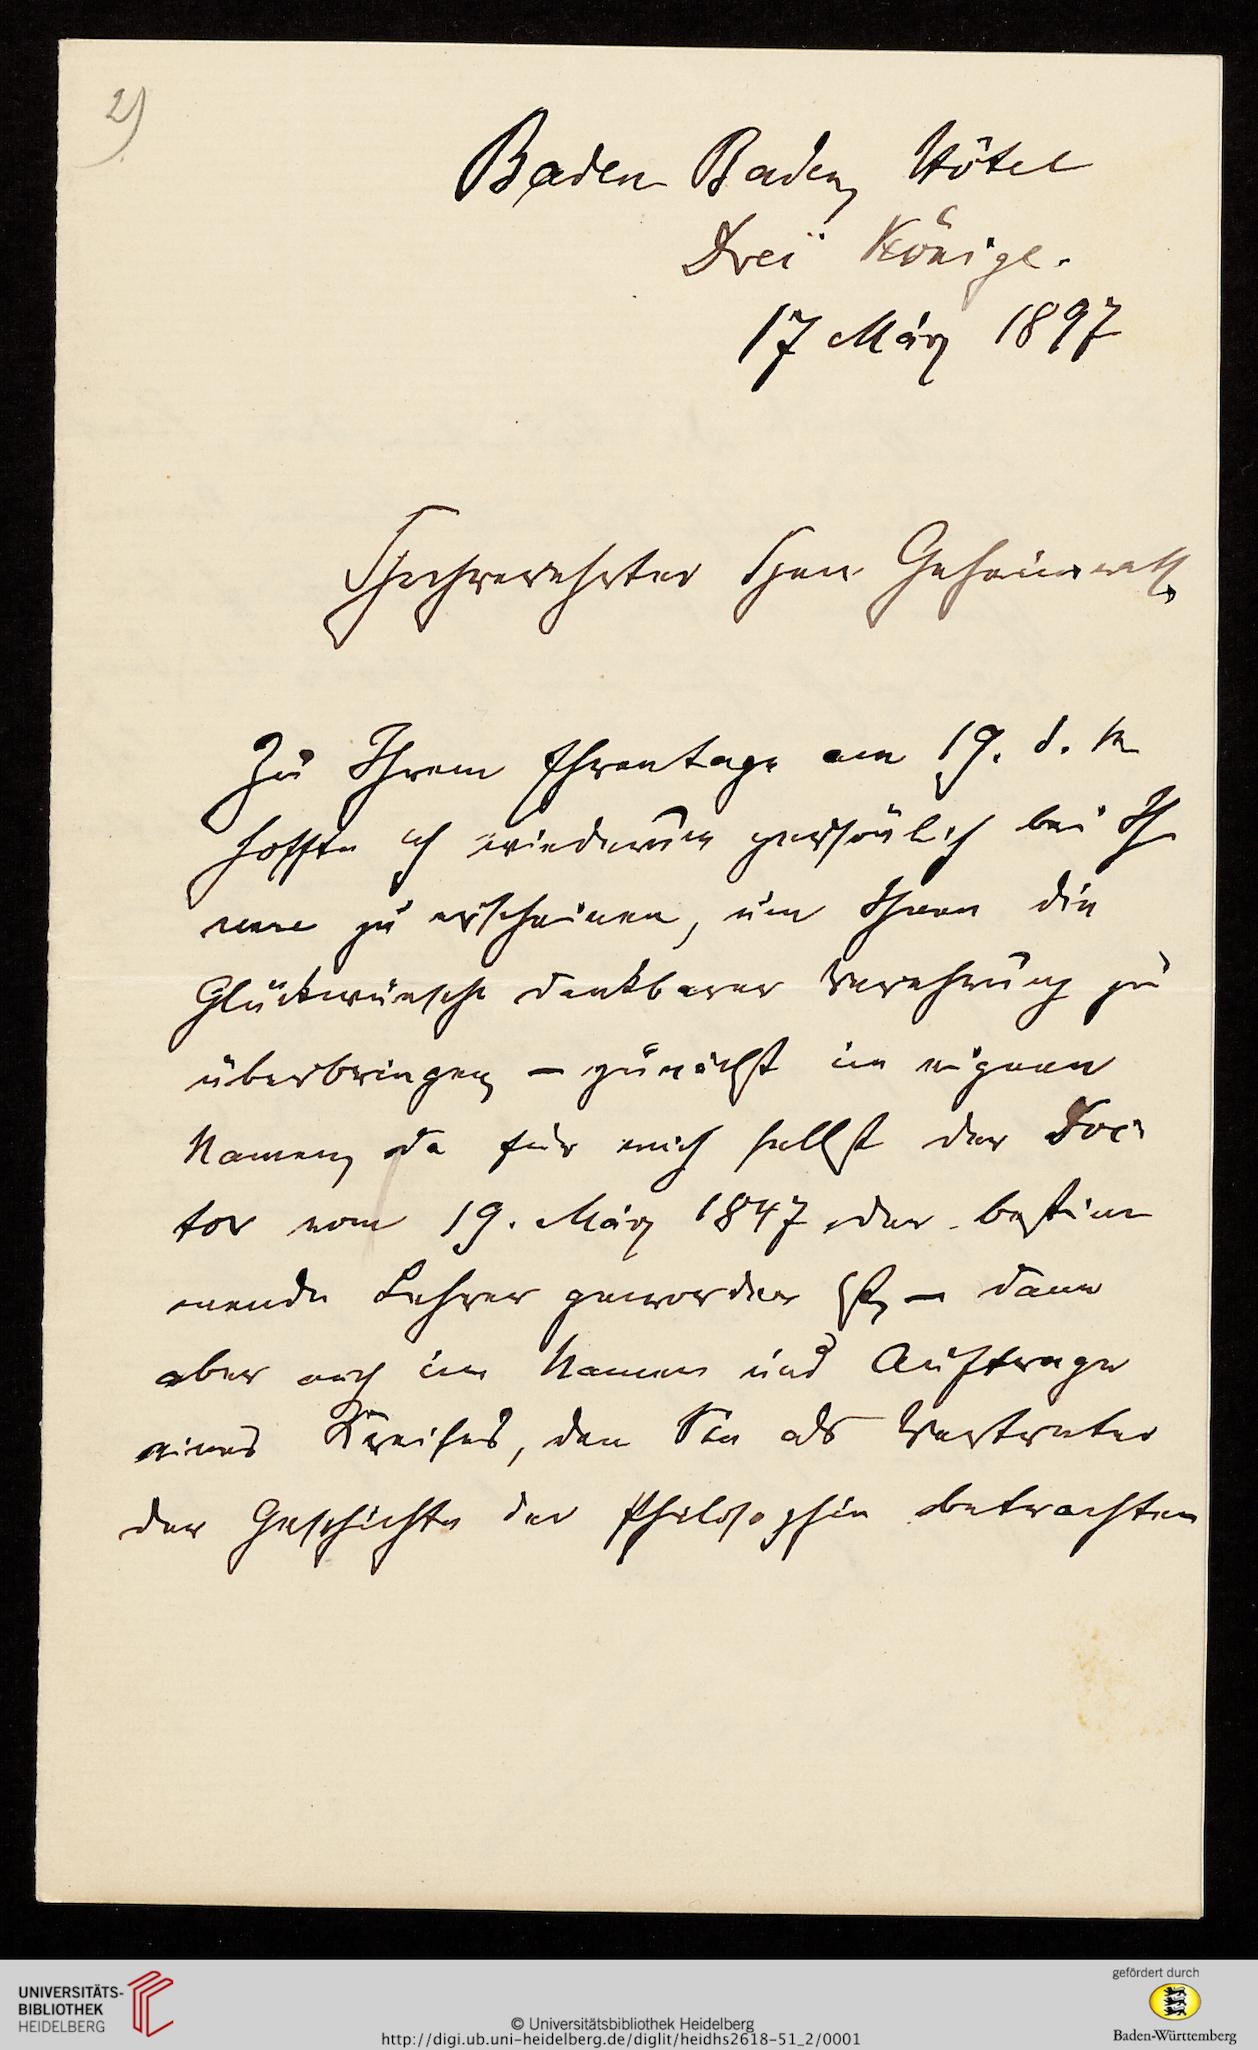 2)
Baden Baden, Hôtel
Drei Könige.
17 März 1897
Hochverehrter Herr Geheimrath,
Zu Ihrem Ehrentage am 19. d. M
hoffte ich wiederum persönlich bei Ih
nen zu erscheinen, um Ihnen die
Glückwünsche dankbarer Verehrung zu
überbringen — zunächst im eigenen
Namen, da für mich selbst der Doc-
tor vom 19. März 1847 der bestim
mende Lehrer geworden ist, — dann
aber auch im Namen und Auftrage
eines Kreises, den Sie als Vertreter
der Geschichte der Philosophie betrachten
UNIVERSITÄTS-
BIBLIOTHEK
HEIDELBERG
© Universitätsbibliothek Heidelberg
http://digi.ub.uni-heidelberg.de/diglit/heidhs2618-51_2/0001
gefördert durch
Baden-Württemberg